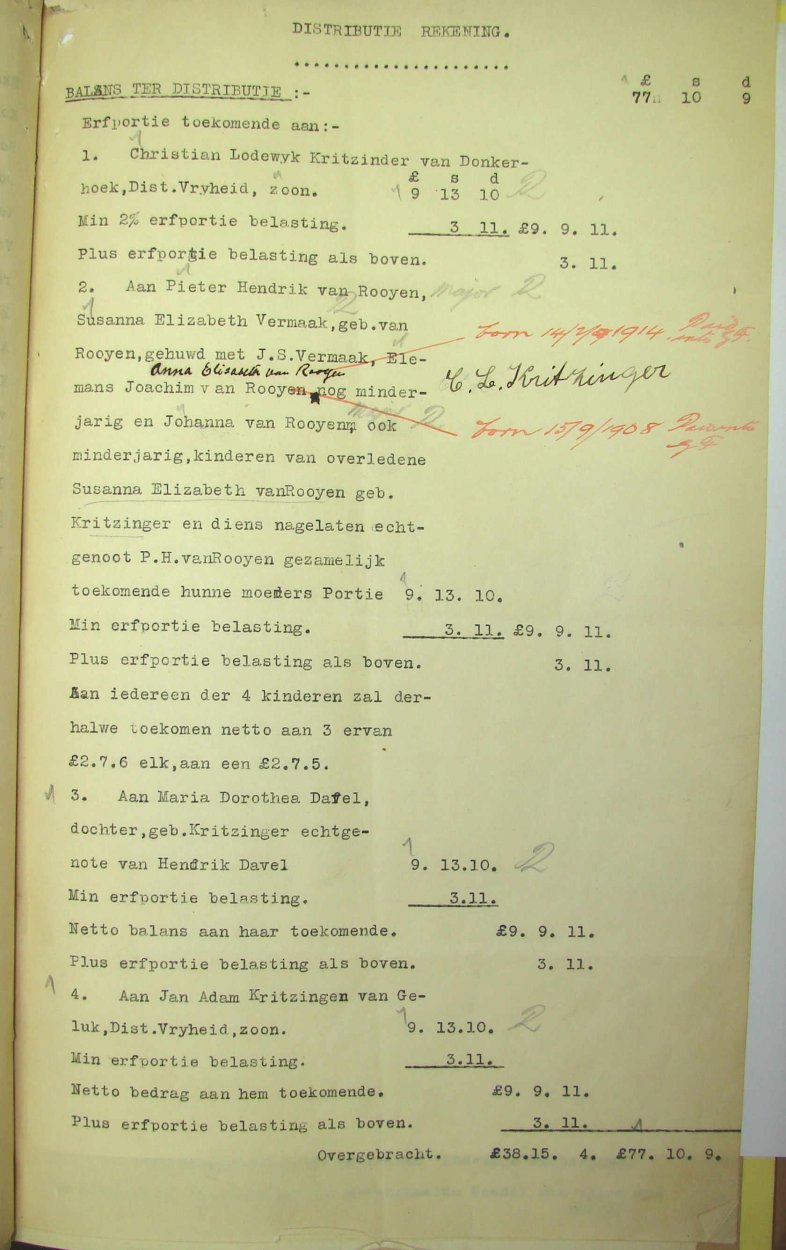 DISTRIBUTIE REKENING.
......................
BALANS TER DISTRIBUTIE :-
£ s d
77 10 9
Erfportie toekomende aan:-
1. Christian Lodewyk Kritzinder van Donker-
£ s d
hoek,Dist.Vryheid, zoon. 9 13 10
Min 2% erfportie belasting. 3 11. £9. 9. 11.
Plus erfportie belasting als boven. 3. 11.
2. Aan Pieter Hendrik van Rooyen, major
Susanna Elizabeth Vermaak,geb.van born 14/2/1914
Rooyen,gehuwd met J.S.Vermaak, Ele-
Anna Elisabeth van Rooyen
mans Joachim van Rooyen nog minder- C. L. Kritzinger
jarig en Johanna van Rooyen, ook major born 15/9/1908
minderjarig,kinderen van overledene
Susanna Elizabeth vanRooyen geb.
Kritzinger en diens nagelaten echt-
genoot P.H.vanRooyen gezamelijk
toekomende hunne moeders Portie 9. 13. 10.
Min erfportie belasting. 3. 11. £9. 9. 11.
Plus erfportie belasting als boven. 3. 11.
Aan iedereen der 4 kinderen zal der-
halwe toekomen netto aan 3 ervan
£2.7.6 elk,aan een £2.7.5.
3. Aan Maria Dorothea Davel,
dochter,geb.Kritzinger echtge-
note van Hendrik Davel 9. 13.10.
Min erfportie belasting. 3.11.
Netto balans aan haar toekomende. £9. 9. 11.
Plus erfportie belasting als boven. 3. 11.
4. Aan Jan Adam Kritzingen van Ge-
luk,Dist.Vryheid,zoon. 9. 13.10.
Min erfportie belasting. 3.11.
Netto bedrag aan hem toekomende. £9. 9. 11.
Plus erfportie belasting als boven. 3. 11.
Overgebracht. £38.15. 4. £77. 10. 9.